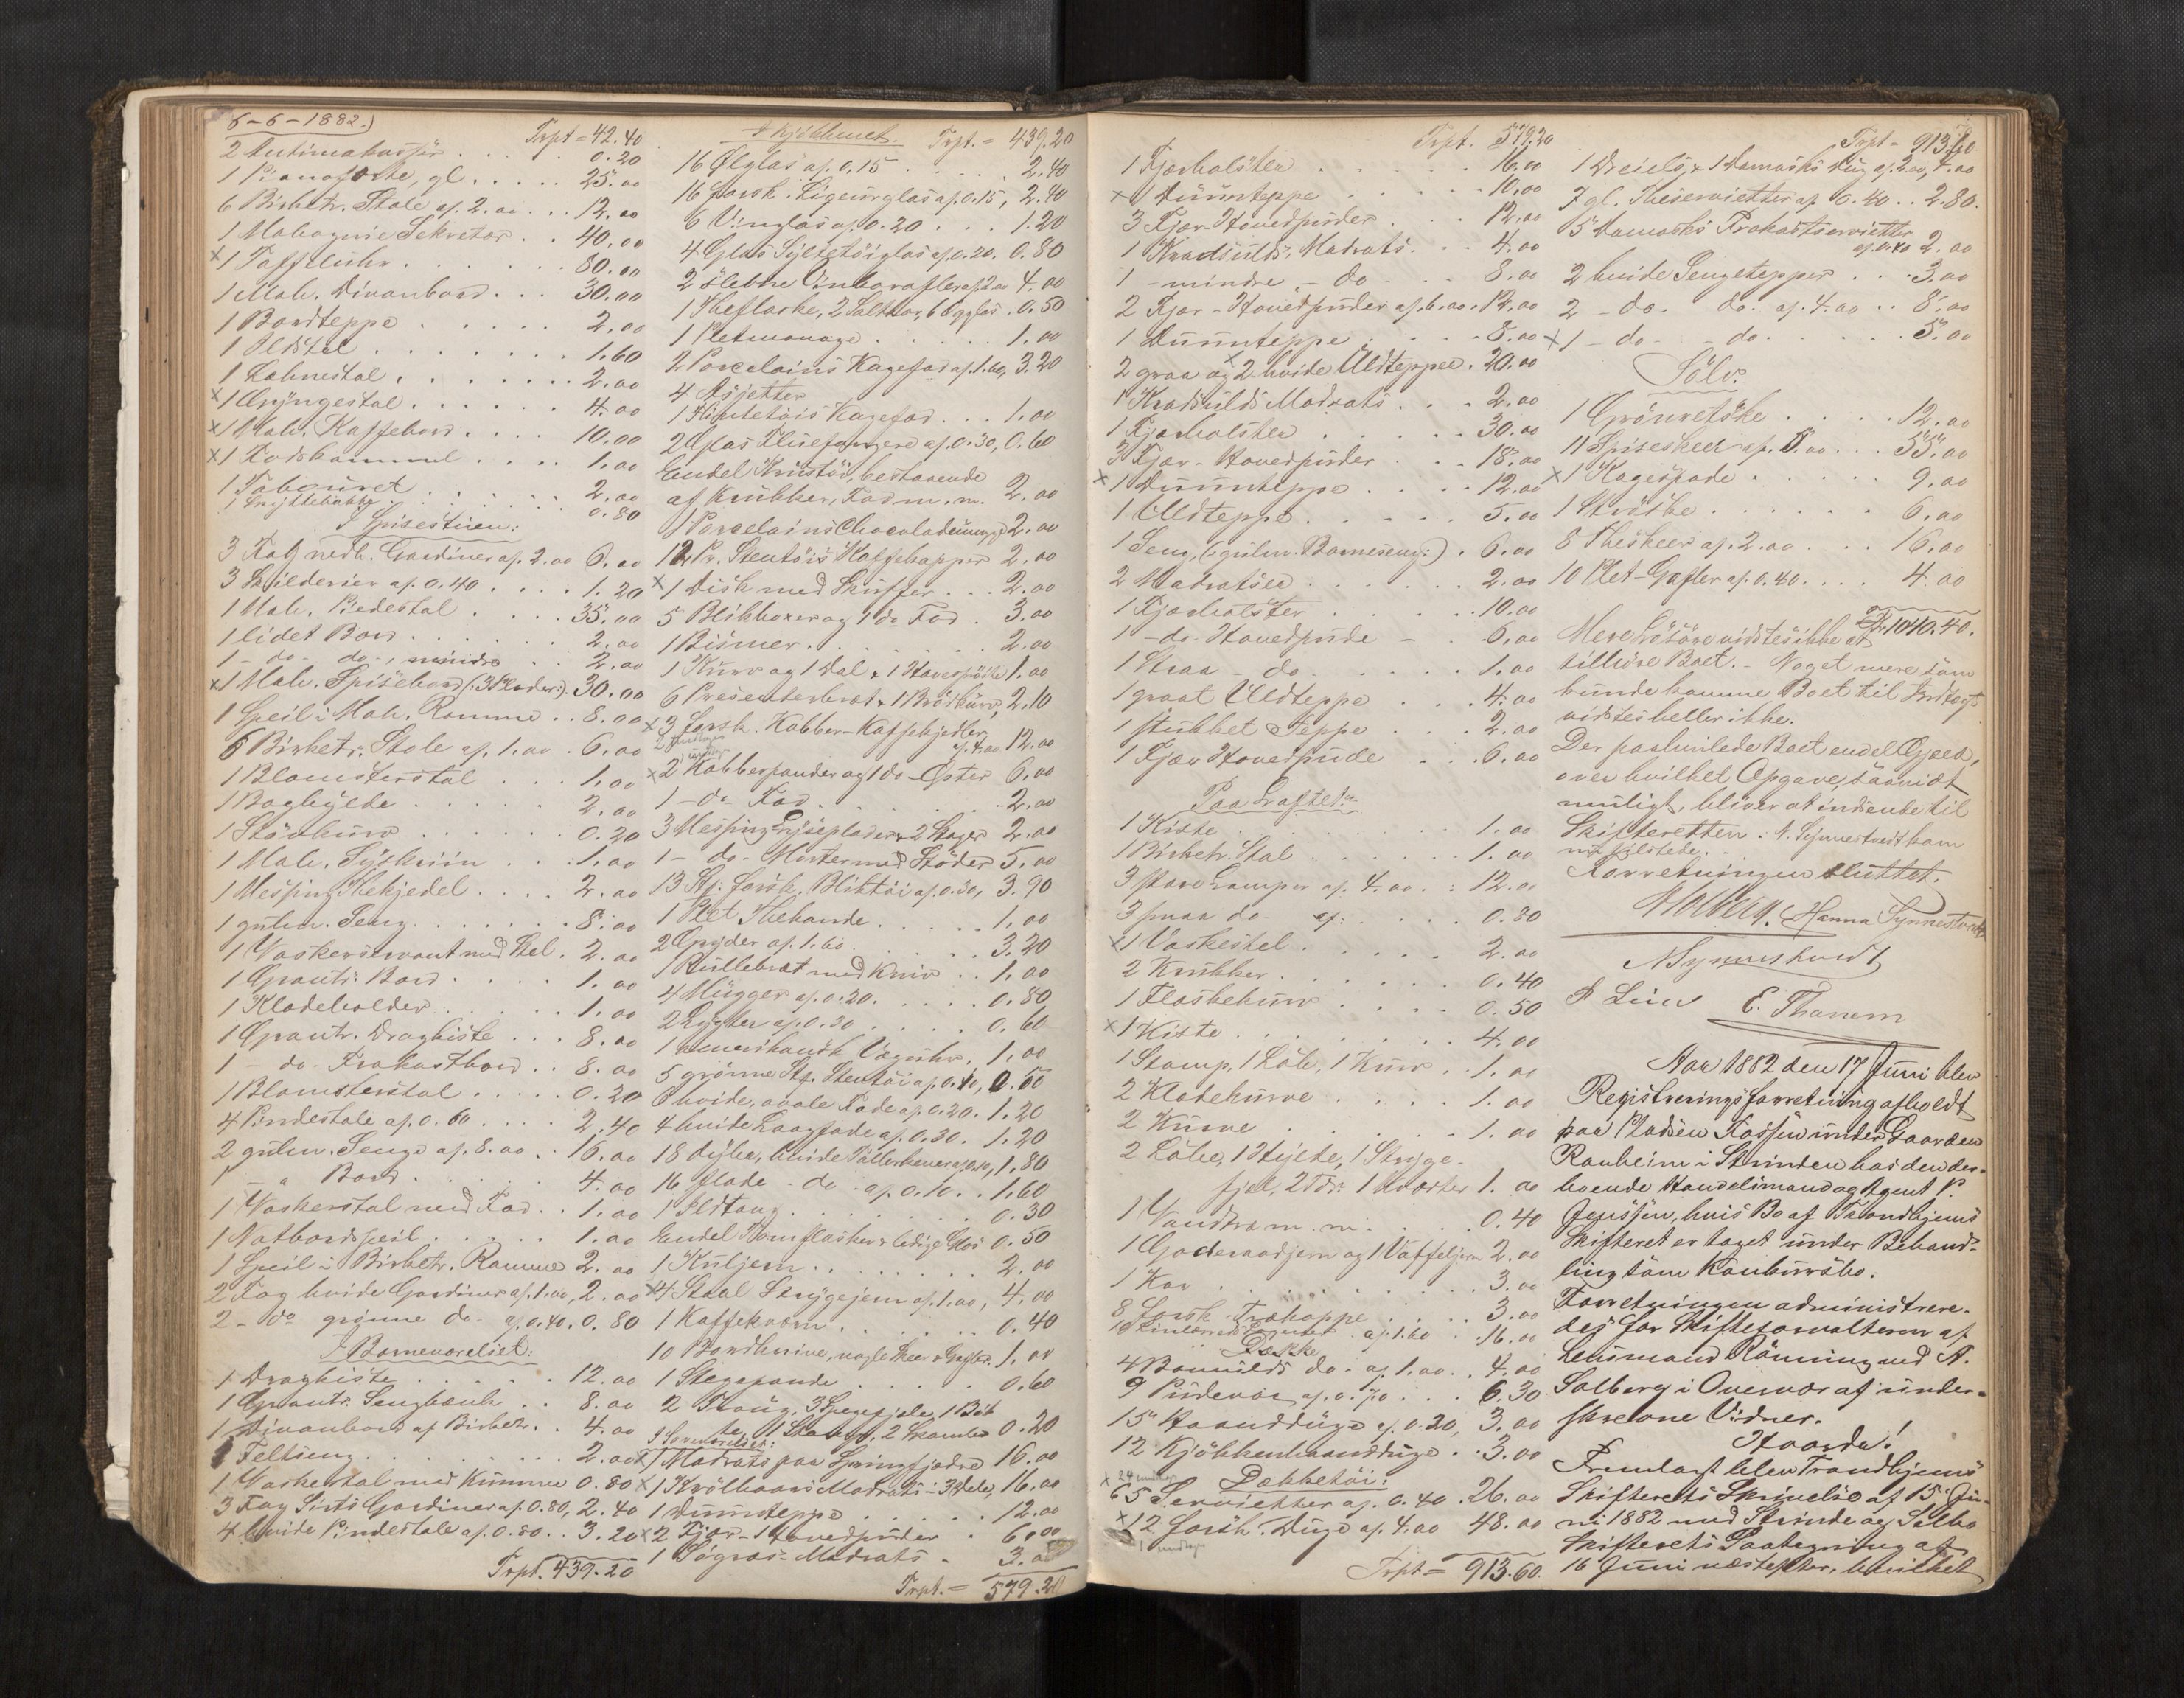 6-6-1882.)
Trpt = 42.40
2 Antimakassar . . 0.20
1 Pianoforte, gl. . . . . 25.00
6 Birketr. Stole af. 2.00 . . . 12.00
1 Mahogni Sekretær . . 40.00
x 1 Taffeluhr . . . . . 80.00
1 Mah. Divanbord . . . 30.00
1 Bordteppe . . . . . 2.00
1 Ildstel . . . . . . . 1.60
1 Lehnestol . . . . . . 2.00
x 1 Gyngestol . . . . . 4.00
x 1 Mah. Kaffebord . . . . 10.00
x 1 Fodskammel . . . . 1.00
1 Tabouret . . . . . . 2.00
1 Spyttebakke . . . . . 0.80
I Spisestuen:
3 Fag nedh. Gardiner af. 2.00 6.00
3 Skilderier af 0.40 . . . . 1.20
1 Mah. Piedestal . . . . 35.00
1 lidet Bord . . . . . . 2.00
1 - do - do -, mindre . . 2.00
x 1 Mah. Spisebord (: 3 Plader :) . 30.00
1 Speil i Mah. Ramme . . 8.00
6 Birketr. Stole af. 1.00 . 6.00
1 Blomsterstol . . . 1.00
1 Boghylde . . . . . 2.00
1 Stövkurv . . . . . . 0.20
1 Mah. Syskrin . . . 1.00
1 Messing Thekjedel . . . . 2.00
1 gulm. Seng . . . . . . 8.00
1 Vaskerservant med Stel . 2.00
1 Grantr. Bord . . . . 1.00
1 Klædeholder . . . . . 1.00
1 Grantr. Dragkiste . . . 8.00
1 - do - Frokostbord . . 8.00
1 Blomsterstol . . . . . 0.20
4 Pindestole af. 0.60 . . . . 2.40
2 gulm. Senge af. 8.00 . . 16.00
1 - " Bord . . . . . 4.00
1 Vaskerstol med Fad . . 1.00
1 Natbordspeil . . . . . 1.00
1 Speil i Birketr. Ramme 2.00
2 Fag hvide Gardiner af. 1.00, 2.00
2 - do grønne do - af 0.40. 0.80
I Børneværelset:
1 Dragkiste . . . . . 12.00
1 Grantr. Sengbænk . . 8.00
1 Divanbord af Birketr. . . 4.00
1 Feltseng . . . . . . 2.00
1 Vaskerstol med Kumme 0.80
3 Fag Sirts Gardiner af. 0.80, 2.40
4 hvide Pindestole af. 0.80 . . 3.20
Trpt. 439.20
I Kjökkenet.
Trpt. = 439.20
16 Ølglas af. 0.15 . . . . . 2.40
16 forsk. Liqeurglas af. 0.15, 2.40
6 Vinglas af 0.20 . . . 1.20
4 Glas Syltetöiglas af 0.20. 0.80
2 slebne Vinkarafler af 2.00 4.00
1 Theflaske, 2 Saltkar, 6 Egglas . 0.50
1 Pletmenage . . . . . 1.00
2 Porcelains Kagefad af. 1.60, 3.20
4 Asjetter
1 Flintetöis Kagefad . . . 1.00
2 Glas Fluefangere af 0.30, 0.60
Endel Krustöi, bestaaende
af Krukker, Fad m.m. 2.00
1 Porcelains Chocolademugge 2.00
12 Pr. Stentöis Kaffekopper 2.00
x 1 Disk med Skuffer . . . 2.00
5 Blikboxer og 1 do Fad . 3.00
1 Bismer . . . . . . . 2.00
1 Kurv og 1 Dal & 1 Haves... 1.00
6 Presenterbræt & 1 Brödkurv, 2.10
x 3 forsk. Kobber-Kaffekjedler
2 undtages af. 4.00 12.00
x 2 Kobberpander og 1 do - Øster 6.00
1 - do Fad . . . . . . . 2.00
3 Messing Lyseplader & 2 Stager 2.00
1 - do - Morter med Stöder 5.00
13 Stk. forsk. Bliktöi af 0.30, 3.90
1 Plet Thekande . . . . . 1.00
2 Gryder af. 1.60 . . . . . 3.20
1 Rullebræt med Kniv . . 1.00
4 Mugger af 0.20 . . . . . 0.80
2 Lygter af. 0.30 . . . . . 0.60
1 amerikansk Væguhr. 1.00
5 grönne Stk. Stentöi af. 0.10, 0.50
6 hvide, ovale Fade af 0.20. 1.20
4 hvide Laagfade af. 0.30. 1.20
18 dybe, hvide Tallerkener af 0.10, 1.80
16 flade - do - af. 0.10. . 1.60
1 Ildtang . . . . . . . 0.30
Endel Tomflasker & ledige Glas 0.50
1 Kuljern . . . . . . . 2.00
x 4 Staal Strygejern af. 1.00, 4.00
1 Kaffekværn . . . . . . 0.40
10 Bordknive, nogle Skeer & Gafler. 1.00
1 Stegepande . . . . . . 0.60
2 Traug, 3 Spegefjele, 1 Böt
te, 1 Skammel, 2 Skamler 0.20
I Soveværelset:
x 1 Madrats paa Springfjedre 16.00
x 1 Krölhaars Madrats i 3 Dele, 16.00
1 Dunnteppe . . . . . . 12.00
x 2 Fjær-Hovedpuder . 6.00
1 Søgræs-Madrats . 3.00
Trpt. = 579.20
Trpt. 579.20
1 Fjærbolster . . . . . . 16.00
x 1 Dunnteppe . . . . . 10.00
3 Fjær-Hovedpuder . . . 12.00
1 Kraduulds Madrats . . . 4.00
1 - mindre - do - . . 8.00
2 Fjær-Hovedpuder af. 6.00. 12.00
1 Dunnteppe . . . . . 8.00
2 graa og 2 hvide Uldtepper . 20.00
1 Kraduulds Madrats . . . 2.00
1 Fjærbolster . . . . . . 30.00
3 Fjær-Hovedpuder . . . 18.00
x 1 Dunnteppe . . . . . 12.00
1 Uldteppe . . . . . . 5.00
1 Seng, (: gulm. Barneseng :) . 6.00
2 Madratser . . . . . . 2.00
1 Fjærbolster . . . . . 10.00
1 - do - Hovedpude - . . 6.00
1 Straa - do . . . . . . 1.00
1 graat Uldteppe . . . 4.00
1 stukket Teppe . . . 2.00
1 Fjær Hovedpude . . . 6.00
Paa Loftet:
1 Kiste . . . . . . . 1.00
1 Birketr. Stol . . . . . 1.00
3 store Lamper af. 4.00 . . 12.00
3 smaa do - af: . . . . 0.80
x 1 Vaskestel . . . . . . 2.00
2 Krukker . . . . . . 0.40
1 Flaskekurv . . . . 0.50
x 1 Kiste . . . . . . . 4.00
1 Stamp, 1 Løb, 1 Kurv . . 1.00
2 Klædekurve . . . . . 1.00
2 Kurve . . . . . . . 1.00
2 Løbe, 1 Dyjebe, 1 Stryge-
fjel, 2 Tdr: 1 Kvarter 1.00
1 Vandtr... m.m. . . . 0.40
1 Goderaadjern og 1 Vaffeljern 2.00
1 Kar . . . . . . . . . 3.00
8 forsk. Trækoppe . . . . 3.00
10 ... af. 1.60 . . 16.00
4 Bomulds do - af 1.00 . . 4.00
9 Pudevar af. 0.70 . . . 6.30
15 Haandduge af 0.20, 3.00
12 Kjökkenhaandduge . . 3.00
Dækketöi:
x 24 undtages
65 Servietter af. 0.40 . 26.00
x 12 forsk. Duge af. 4.00 48.00
1 undtages
Trpt = 913.60.
Trpt = 913.60
1 Dreiels & 1 Damasks Dug af. 2.00, 4.00
7 gl. Theservietter af 0.40 . . 2.80.
5 Damasks Frokostservietter
af. 0.40 2.00
2 hvide Sengetepper . . . 3.00
2 - do - do - af. 4.00 . . 8.00
x 1 - do - - do - . . . . 5.00
Sölv:
1 Grönretske . . . . 12.00
11 Spiseskeer af. 5.00 . . . 55.00
x 1 Kagespade . . . . . 9.00
1 Ströske . . . . . . 6.00
8 Theskeer af. 2.00 . . . 16.00
10 Plet-Gafler af. 0.40 . . . . 4.00
Kr. 1040.40.
Mere Lösöre vidstes ikke at
tilhöre Boet. - Noget mere som
kunde komme Boet til Indtægt
vidstes heller ikke.
Der paahvilede Boet endel Gjeld,
over hvilket Opgave, saavidt
muligt, bliver at indsende til
Skifteretten. N. Synnestvedt kom
nu tilstede.
Forretningen sluttet.
Holberg. Hanna Synnestvedt
N Synnestvedt
P. Lein E. Thanem
Aar 1882 den 17 Juni blev
Registreringsforretning afholdt
paa Pladsen Fossen under Gaarden
Ranheim i Strinden hos den der-
boende Handelsmand og Agent P.
Jenssen, hvis Bo af Trondhjems
Skifteret er taget under Behand-
ling som Konkursbo.
Forretningen administrere-
des for Skifteforvalteren af
Lensmand Rönning ved A.
Solberg i Overvær af under-
skrevne Vidner.
Hvorda!
Fremlagt blev Trondhjems
Skifterets Skrivelse af 15 Ju-
ni 1882 med Strinde og Selbo
Skifterets Paategning af
16 Juni næstefter, hvilket